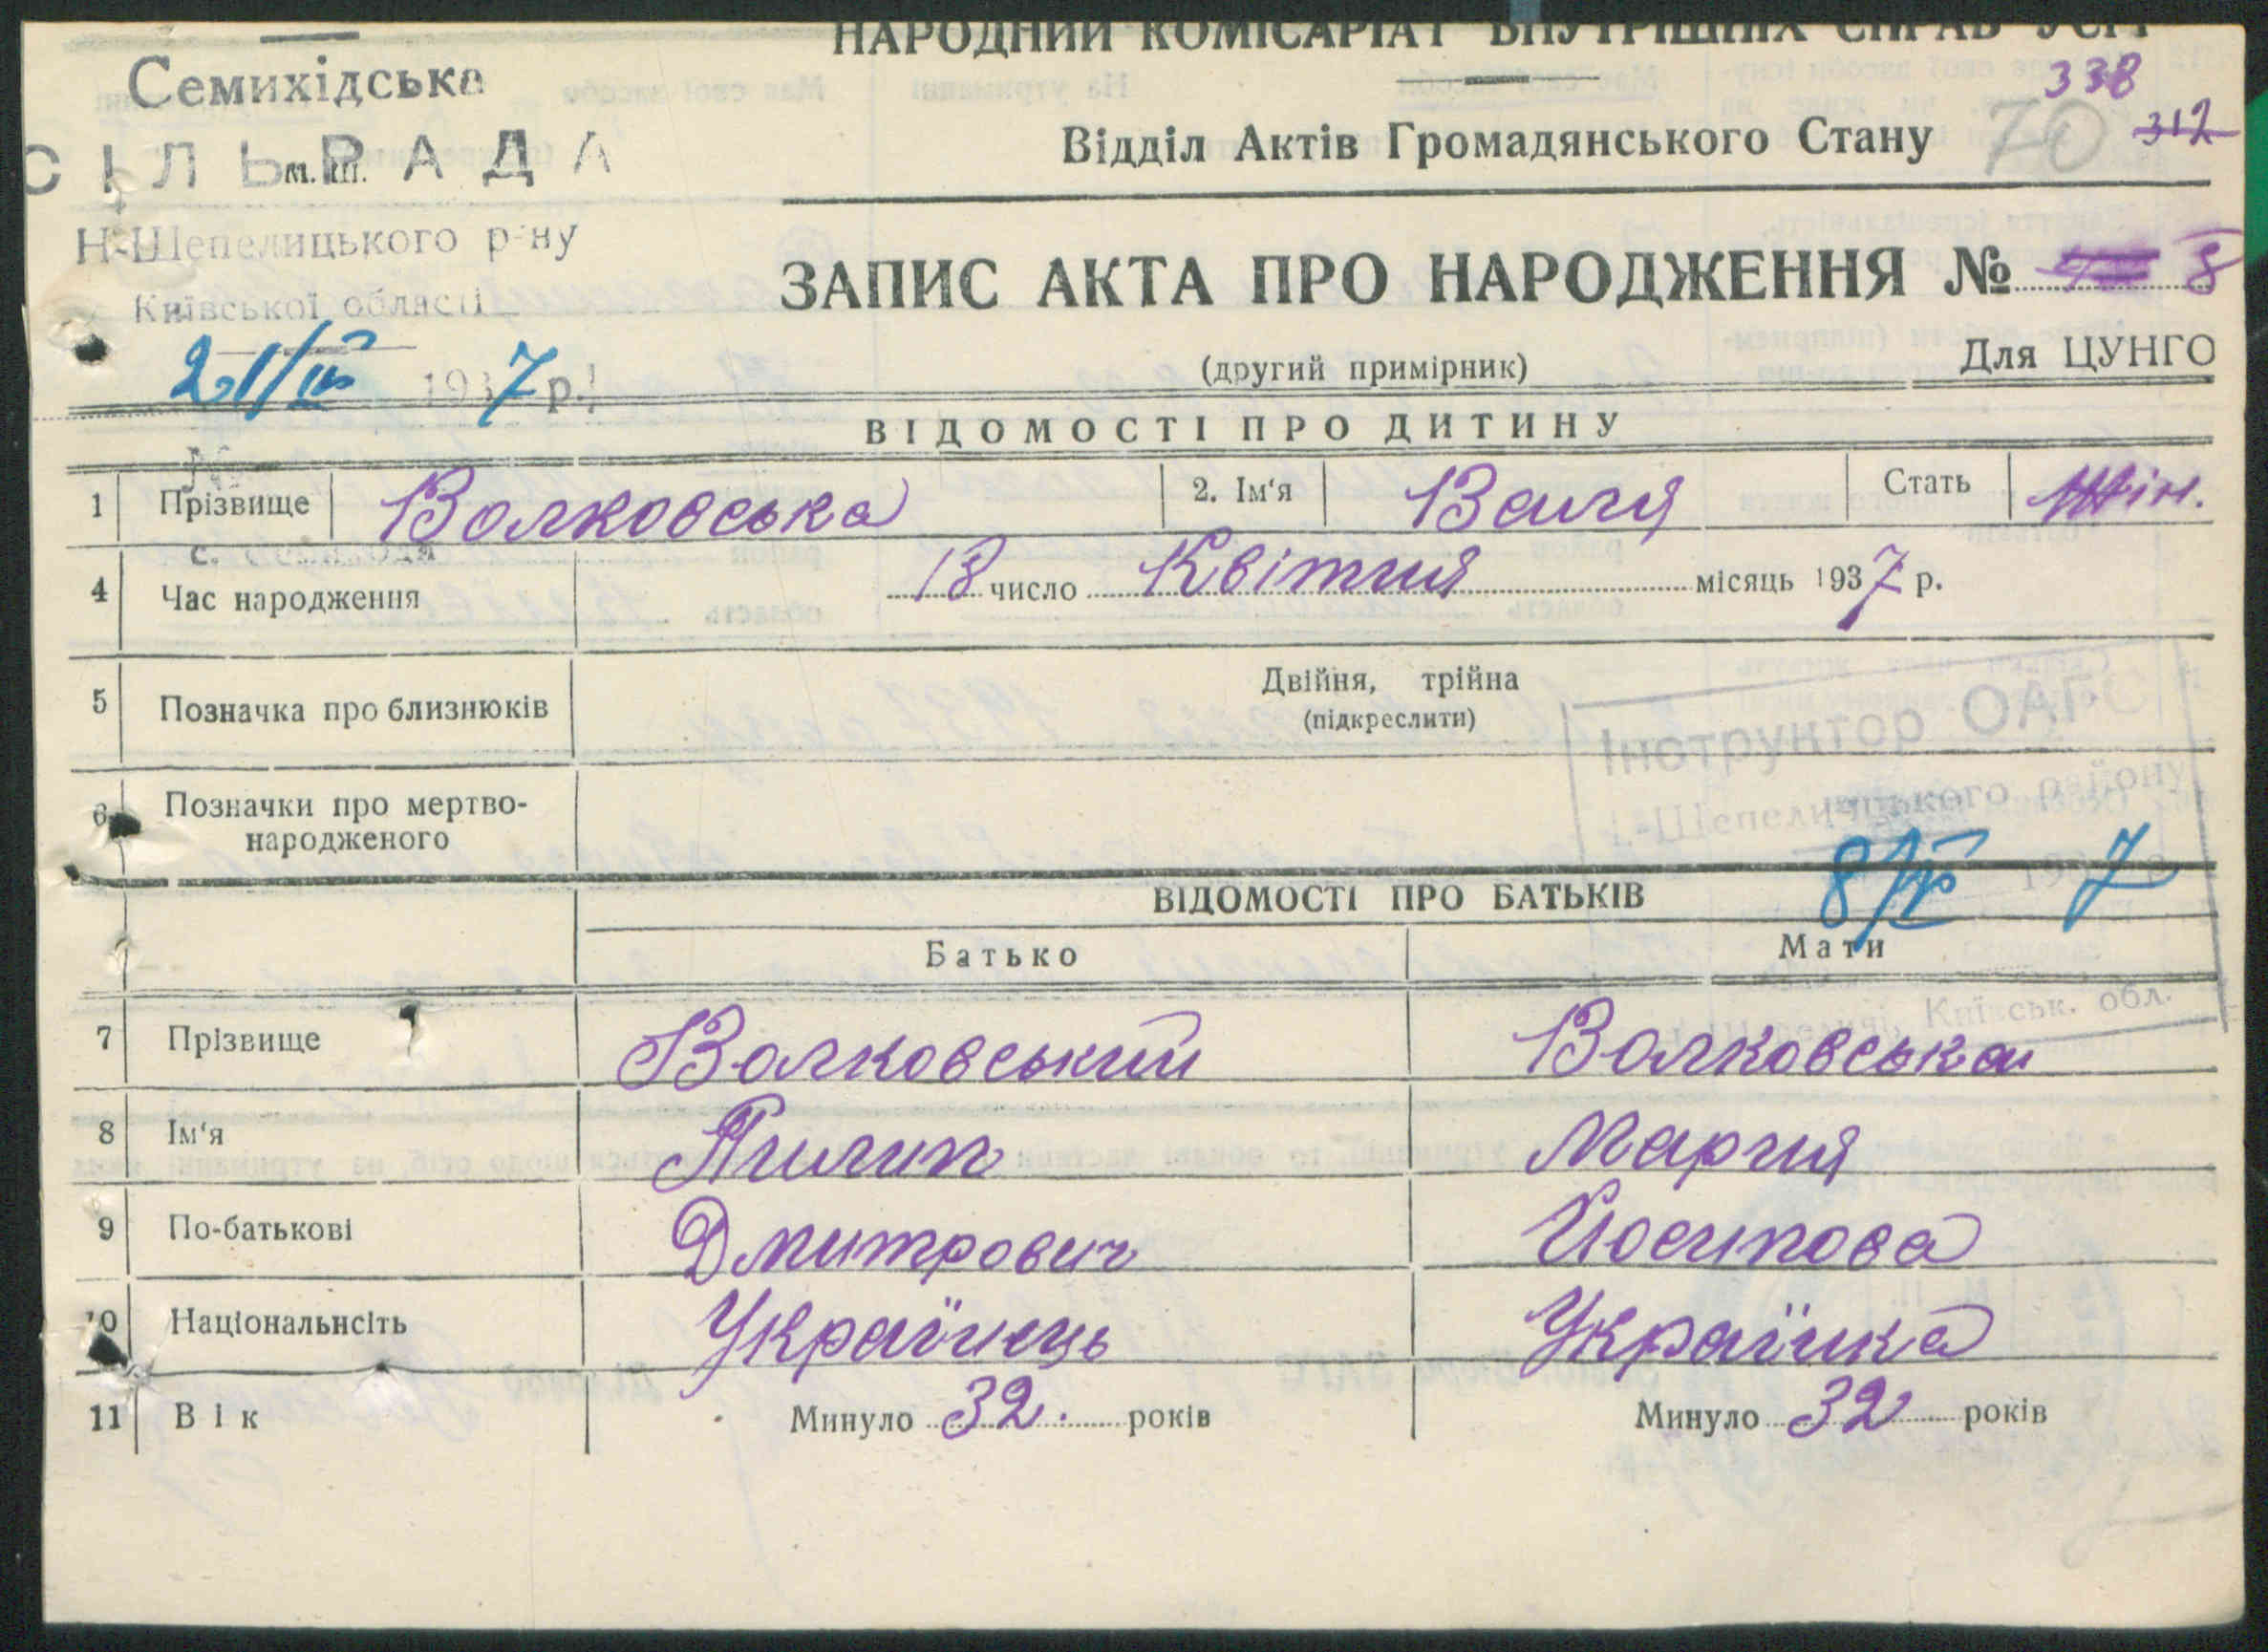 НАРОДНИЙ КОМІСАРІАТ ВНУТРІШНІХ СПРАВ УСРР
Семихідська
338
Відділ Актів Громадянського Стану
70
312
СІЛЬРАДА
м. ш.
Н-Шепелицького р-ну
Київської області
ЗАПИС АКТА ПРО НАРОДЖЕННЯ № 8
(другий примірник)
Для ЦУНГО
1937 р.
ВІДОМОСТІ ПРО ДИТИНУ
1 Прізвище Волковська 2. Ім‘я Валя Стать Жін.
4 Час народження 18 число Квітня місяць 1937 р.
5 Позначка про близнюків Двійня, трійна
(підкреслити)
Інструктор ОАГС
-Шепелицького району
6 Позначки про мертво-
народженого
ВІДОМОСТІ ПРО БАТЬКІВ
Батько Мати
Київськ. обл.
7 Прізвище Волковський Волковська
8 Ім‘я Пилип Мария
9 По-батькові Дмитрович Йосипова
10 Національнсіть Українець Українка
11 Вік Минуло 32. років Минуло 32 років